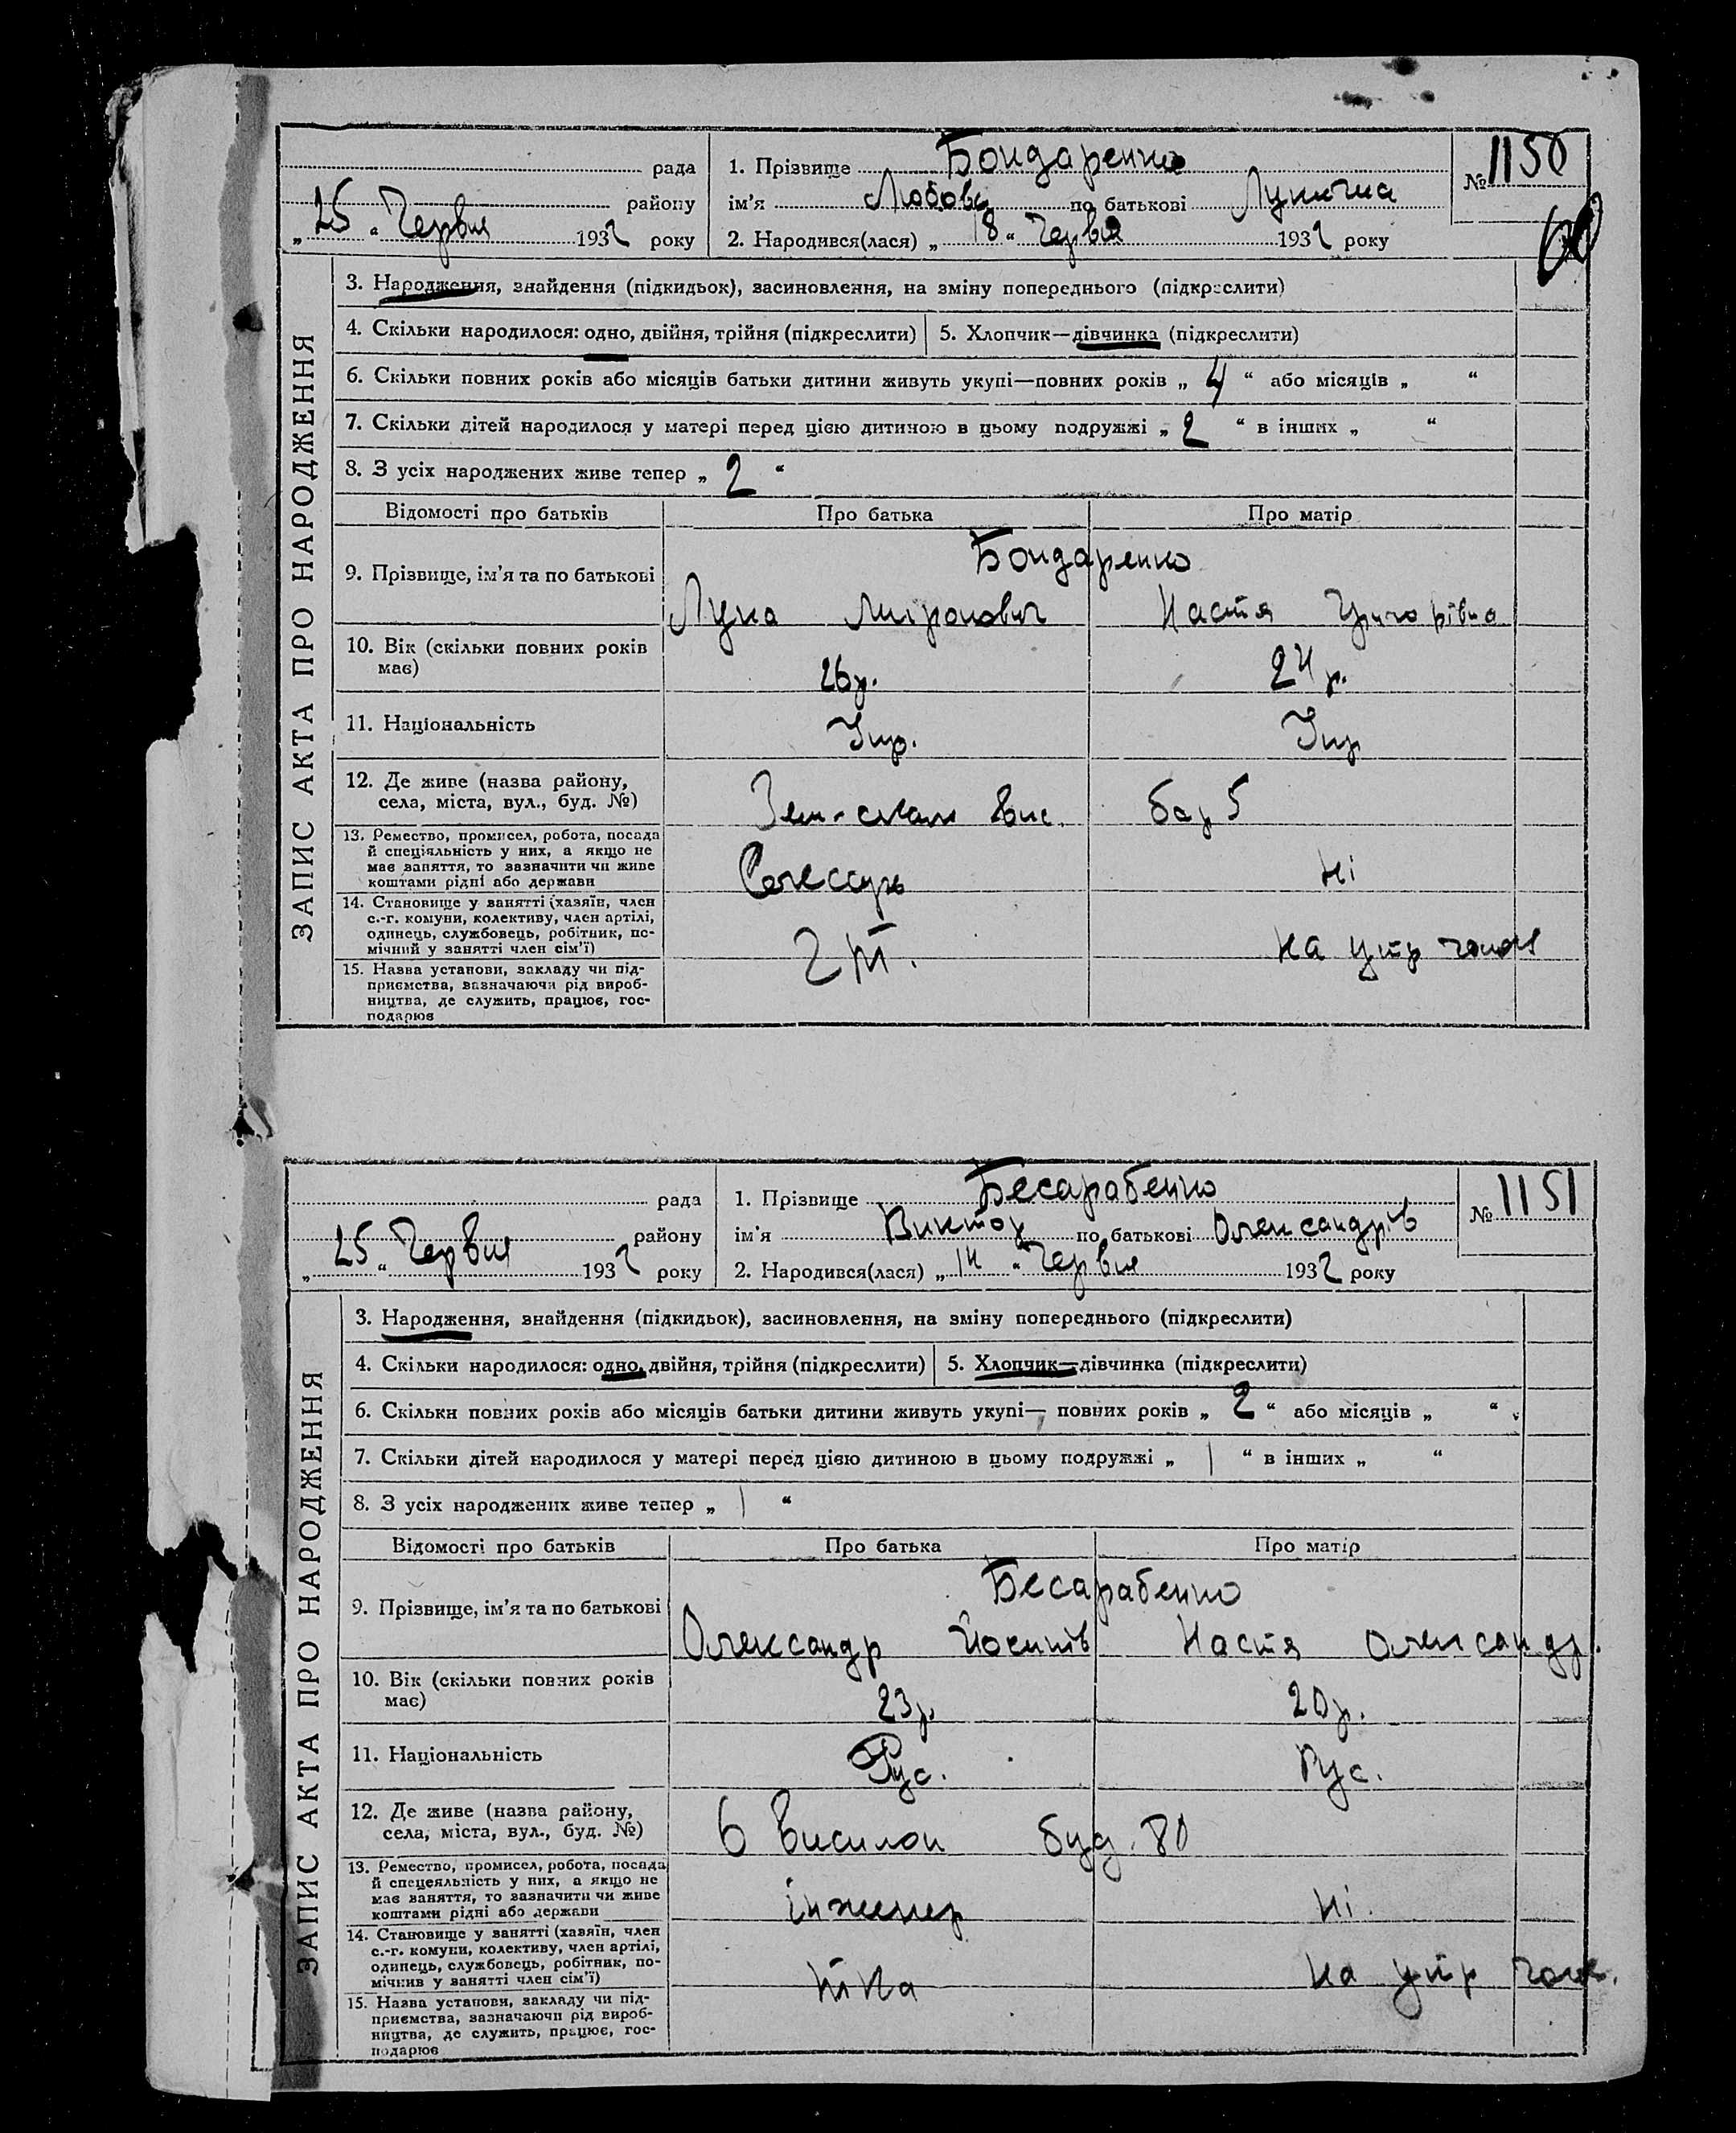 ЗАПИС АКТА ПРО НАРОДЖЕННЯ
рада
району
„25“ Червня 1932 року
1. Прізвище Бондаренко
ім’я Любовь по батькові Лукична
2. Народився(лася) „18“ Червня 1932 року
№ 1150
3. Народження, знайдення (підкидьок), засиновлення, на зміну попереднього (підкреслити)
4. Скільки народилося: одно, двійня, трійня (підкреслити)
5. Хлопчик—дівчинка (підкреслити)
6. Скільки повних років або місяців батьки дитини живуть укупі—повних років „4“ або місяців „ “
7. Скільки дітей народилося у матері перед цією дитиною в цьому подружжі „2“ в інших „ “
8. З усіх народжених живе тепер „2“
Відомості про батьків Про батька Про матір
Бондаренко
9. Прізвище, ім’я та по батькові
Лука Миронович Настя Григорівна
10. Вік (скільки повних років
має)
26р. 24 р.
11. Національність
Укр. Укр
12. Де живе (назва району,
села, міста, вул., буд. №)
вис. бар 5
13. Ремество, промисел, робота, посада
й спеціяльність у них, а якщо не
має заняття, то зазначити чи живе
коштами рідні або держави
Слессарь ні
14. Становище у занятті (хазяїн, член
с.-г. комуни, колективу, член артілі,
одинець, службовець, робітник, по-
мічний у занятті член сім’ї)
на утр чолов
15. Назва установи, закладу чи під-
приємства, зазначаючи рід вироб-
ництва, де служить, працює, гос-
подарює
ЗАПИС АКТА ПРО НАРОДЖЕННЯ
рада
району
„25“ Червня 1932 року
1. Прізвище Бесарабенко
ім’я Виктор по батькові Олександрів
2. Народився(лася) „14“ Червня 1932 року
№ 1151
3. Народження, знайдення (підкидьок), засиновлення, на зміну попереднього (підкреслити)
4. Скільки народилося: одно, двійня, трійня (підкреслити)
5. Хлопчик—дівчинка (підкреслити)
6. Скільки повних років або місяців батьки дитини живуть укупі— повних років „2“ або місяців „ “
7. Скільки дітей народилося у матері перед цією дитиною в цьому подружжі „1“ в інших „ “
8. З усіх народжених живе тепер „1“
Відомості про батьків Про батька Про матір
Бесарабенко
9. Прізвище, ім’я та по батькові
Олександр Йосипів Настя Олександр.
10. Вік (скільки повних років
має)
23р. 20р.
11. Національність
Рус. Рус.
12. Де живе (назва району,
села, міста, вул., буд. №)
6 висилок буд. 80
13. Ремество, промисел, робота, посада
й спецеяльність у них, а якщо не
має заняття, то зазначити чи живе
коштами рідні або держави
інженер ні.
14. Становище у занятті (хазяїн, член
с.-г. комуни, колективу, член артілі,
одинець, службовець, робітник, по-
мічнив у занятті член сім’ї)
на утр чолов.
15. Назва установи, закладу чи під-
приємства, зазначаючи рід вироб-
ництва, де служить, працює, гос-
подарює